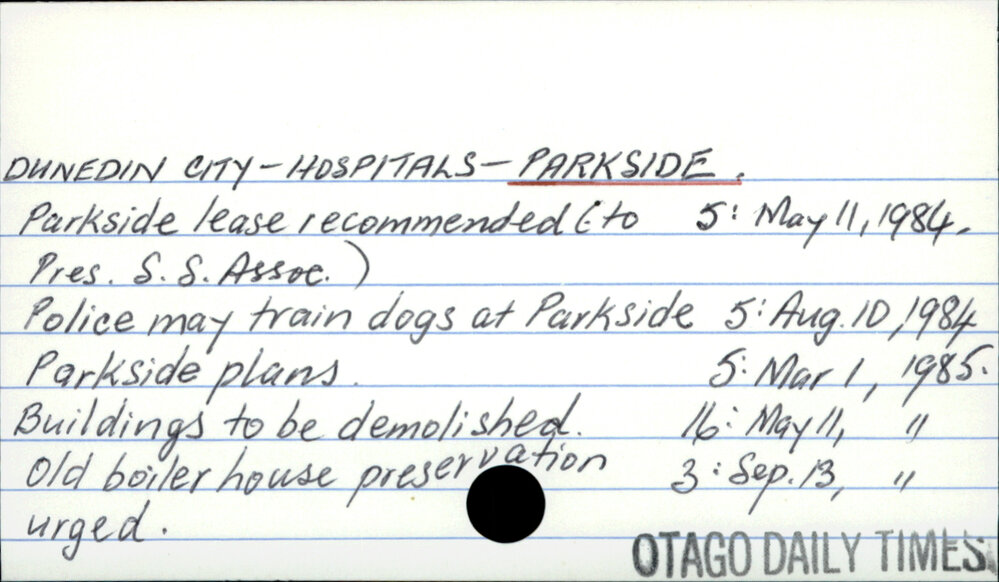 DUNEDIN CITY - HOSPITALS - PARKSIDE.
Parkside lease recommended (to 5: May 11, 1984.
Pres. S. S. Assoc.)
Police may train dogs at Parkside 5: Aug. 10, 1984
Parkside plans. 5: Mar 1, 1985.
Buildings to be demolished. 16: May 11, "
Old boiler house preservation 3: Sep. 13, "
urged.
OTAGO DAILY TIMES